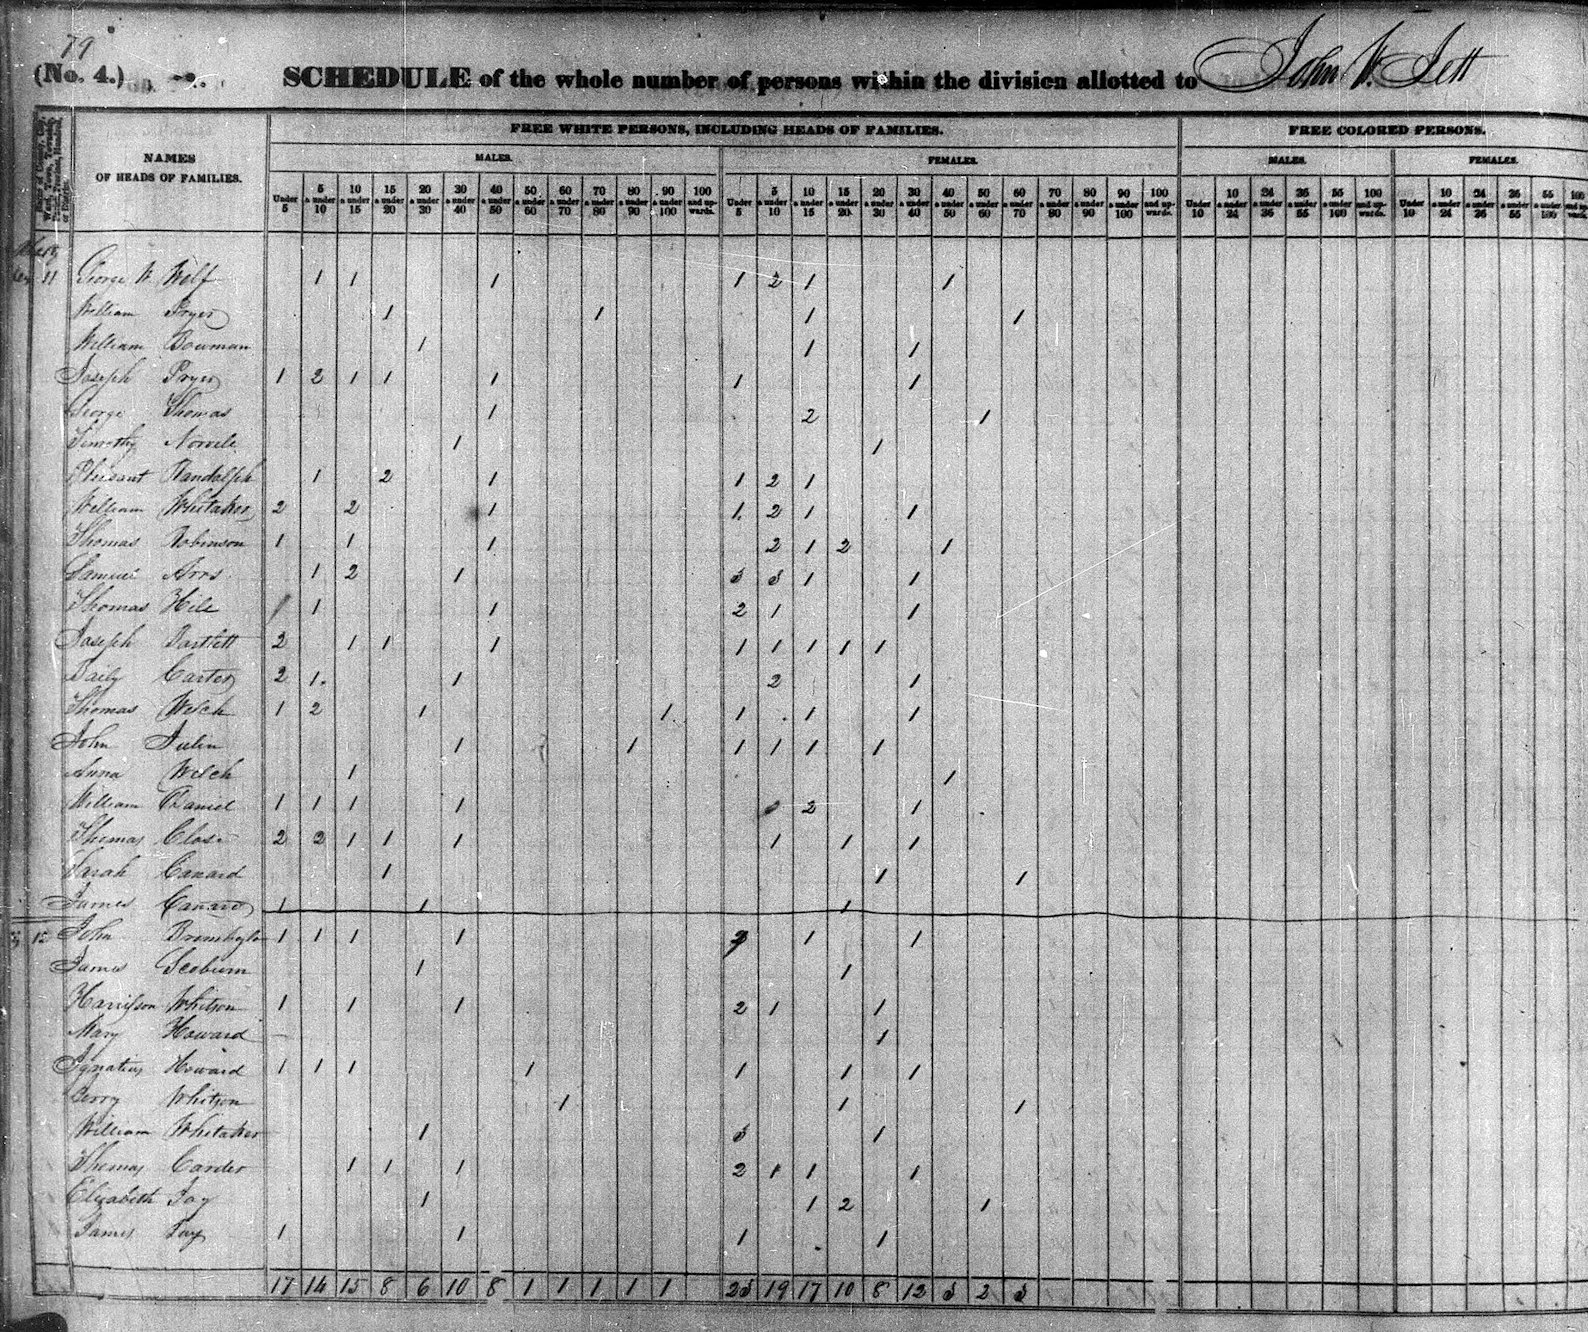 79
(No. 4.)
SCHEDULE of the whole number of persons within the division allotted to John W. Lett
NAMES OF HEADS OF FAMILIES.
FREE WHITE PERSONS, INCLUDING HEADS OF FAMILIES.
FREE COLORED PERSONS.
MALES. FEMALES. MALES. FEMALES.
Under 5 5 & under 10 10 & under 15 15 & under 20 20 & under 30 30 & under 40 40 & under 50 50 & under 60 60 & under 70 70 & under 80 80 & under 90 90 & under 100 100 and upwards. Under 5 5 & under 10 10 & under 15 15 & under 20 20 & under 30 30 & under 40 40 & under 50 50 & under 60 60 & under 70 70 & under 80 80 & under 90 90 & under 100 100 and upwards. Under 10 10 & under 24 24 & under 36 36 & under 55 55 & under 100 100 and upwards. Under 10 10 & under 24 24 & under 36 36 & under 55 55 & under 100
11 George W Wolf 1 1 1 1 2 1 1
William Pryer 1 1 1 1
William Bowman 1 1 1
Joseph Pryer 1 2 1 1 1 1 1
George Thomas 1 2 1
Timothy 1 1
Pleasant Randolph 1 2 1 1 2 1
William Whitaker 2 2 1 1 2 1 1
Thomas Robinson 1 1 1 2 1 2 1
Samuel 1 2 1 3 3 1 1
Thomas Hile 1 1 1 2 1 1
Joseph Bartlett 2 1 1 1 1 1 1 1 1
Baily Carter 2 1 1 2 1
Thomas Welch 1 2 1 1 1 1 1
John Julin 1 1 1 1 1 1
Anna Welch 1 1
William Daniel 1 1 1 1 2 1
Thomas Close 2 2 1 1 1 1 1 1
Sarah Canard 1 1 1
James Canard 1 1 1
John 1 1 1 1 1 1
James 1 1
Harrison Whitson 1 1 1 2 1 1
Mary Howard 1
Ignatius Howard 1 1 1 1 1 1 1
Whitson 1 1 1
William Whitaker 1 3 1
Thomas Carder 1 1 1 2 1 1 1
Elizabeth Jay 1 1 2 1
James Jay 1 1 1 1
17 14 15 8 6 10 8 1 1 1 1 1 23 19 17 10 8 12 3 2 3